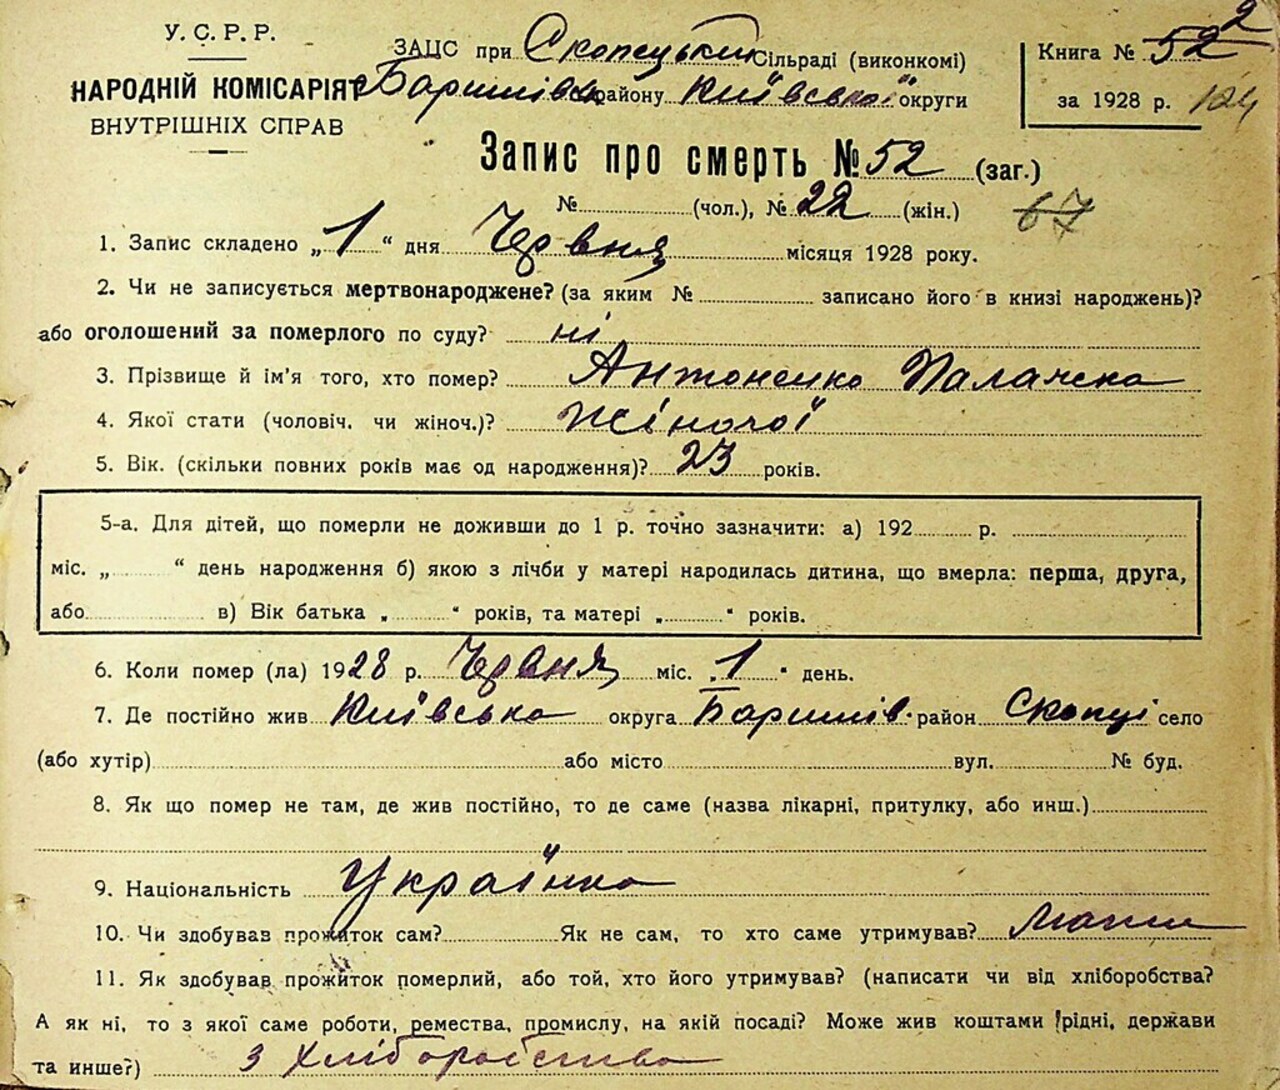 У. С. Р. Р.
НАРОДНІЙ КОМІСАРІЯТ
ВНУТРІШНІХ СПРАВ
ЗАЦС при Скопецькій Сільраді (виконкомі)
Баришівськ. району Київської округи
Книга № 52 2
за 1928 р. 124
Запис про смерть № 52 (заг.)
№ (чол.), № 22 (жін.) 67
1. Запис складено „1“ дня Червня місяця 1928 року.
2. Чи не записується мертвонароджене? (за яким № записано його в книзі народжень)?
або оголошений за померлого по суду? ні
3. Прізвище й ім'я того, хто помер? Антоненко Палажка
4. Якої стати (чоловіч. чи жіноч.)? Жіночої
5. Вік. (скільки повних років має од народження)? 23 років.
5-а. Для дітей, що померли не доживши до 1 р. точно зазначити: а) 192 р.
міс. „ “ день народження б) якою з лічби у матері народилась дитина, що вмерла: перша, друга,
або в) Вік батька „ “ років, та матері „ “ років.
6. Коли помер (ла) 1928 р. Червня міс. „1“ день.
7. Де постійно жив Київська округа Баришів. район Скопці село
(або хутір) або місто вул. № буд.
8. Як що помер не там, де жив постійно, то де саме (назва лікарні, притулку, або инш.)
9. Національність Українка
10. Чи здобував прожиток сам? Як не сам, то хто саме утримував? Мати
11. Як здобував прожиток померлий, або той, хто його утримував? (написати чи від хліборобства?
А як ні, то з якої саме роботи, ремества, промислу, на якій посаді? Може жив коштами рідні, держави
та инше?) З Хліборобства